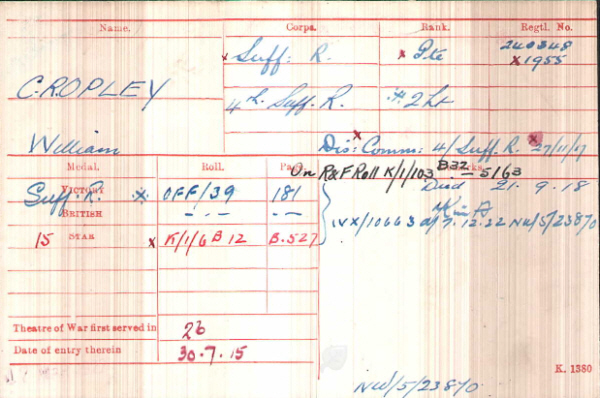 Name. Corps. Rank. Regtl. No.
x Suff: R. x Pte 240848
x 1955
CROPLEY 4th. Suff. R. 2 Lt
William Dis: Comm: 4/Suff. R. x 27/11/17
Medal. Roll. Page. On R&F Roll K/1/103 B32 – 5163
Suff. R. VICTORY x OFF/39 181 Died 21.9.18
BRITISH -- · -- · --
15 STAR x K/1/6 B 12 B.527 IVX/10663 d/7.12.22 NW/5/23870
Theatre of War first served in 2b
Date of entry therein 30.7.15
K. 1380
NW/5/23870